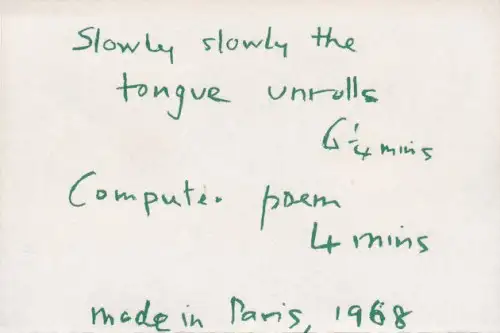 Slowly slowly the
tongue unrolls
6 1/4 mins
Computer poem
4 mins
made in Paris, 1968